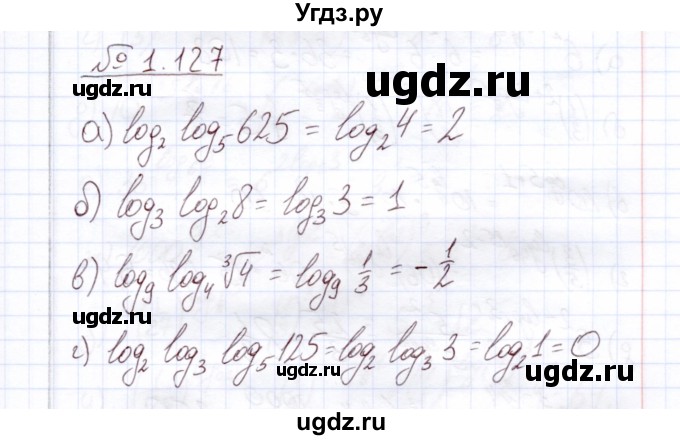 Угдз.ру
№ 1.127
ugdz.ru ugdz.ru
а) log₂ log₅ 625 = log₂ 4 = 2
ugdz.ru
б) log₃ log₂ 8 = log₃ 3 = 1
в) log₉ log₄ ∛4 = log₉ 1/3 = - 1/2
ugdz.ru ugdz.ru
г) log₂ log₃ log₅ 125 = log₂ log₃ 3 = log₂ 1 = 0
ugdz.ru ugdz.ru
ugdz.ru